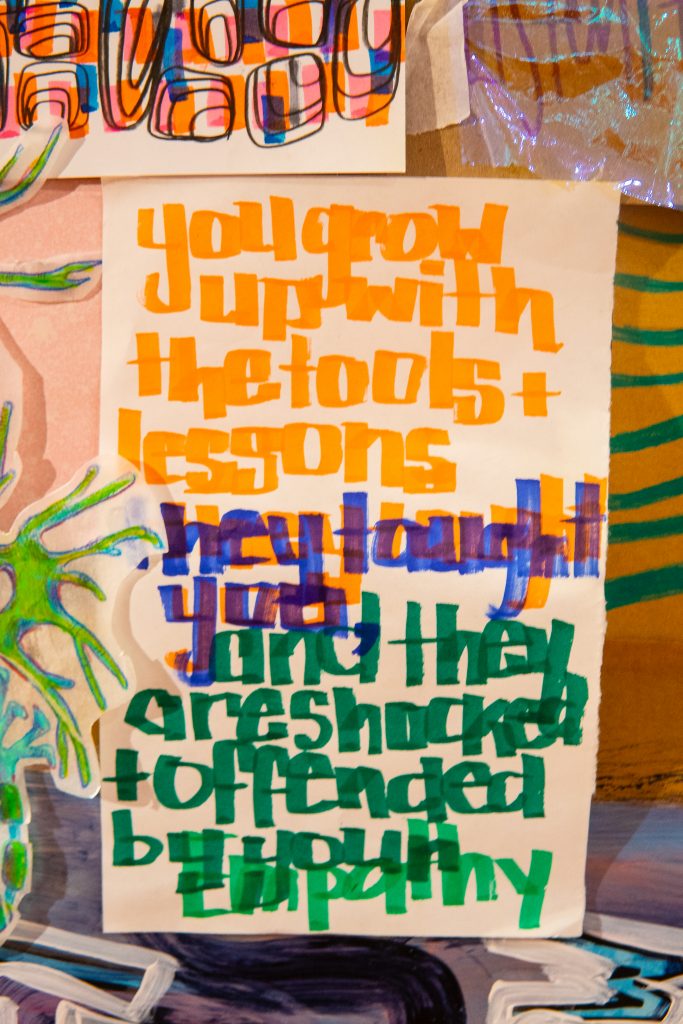 you grow
up with
the tools +
lessons
they taught
you,
and they
are shocked
+ offended
by your
Empathy